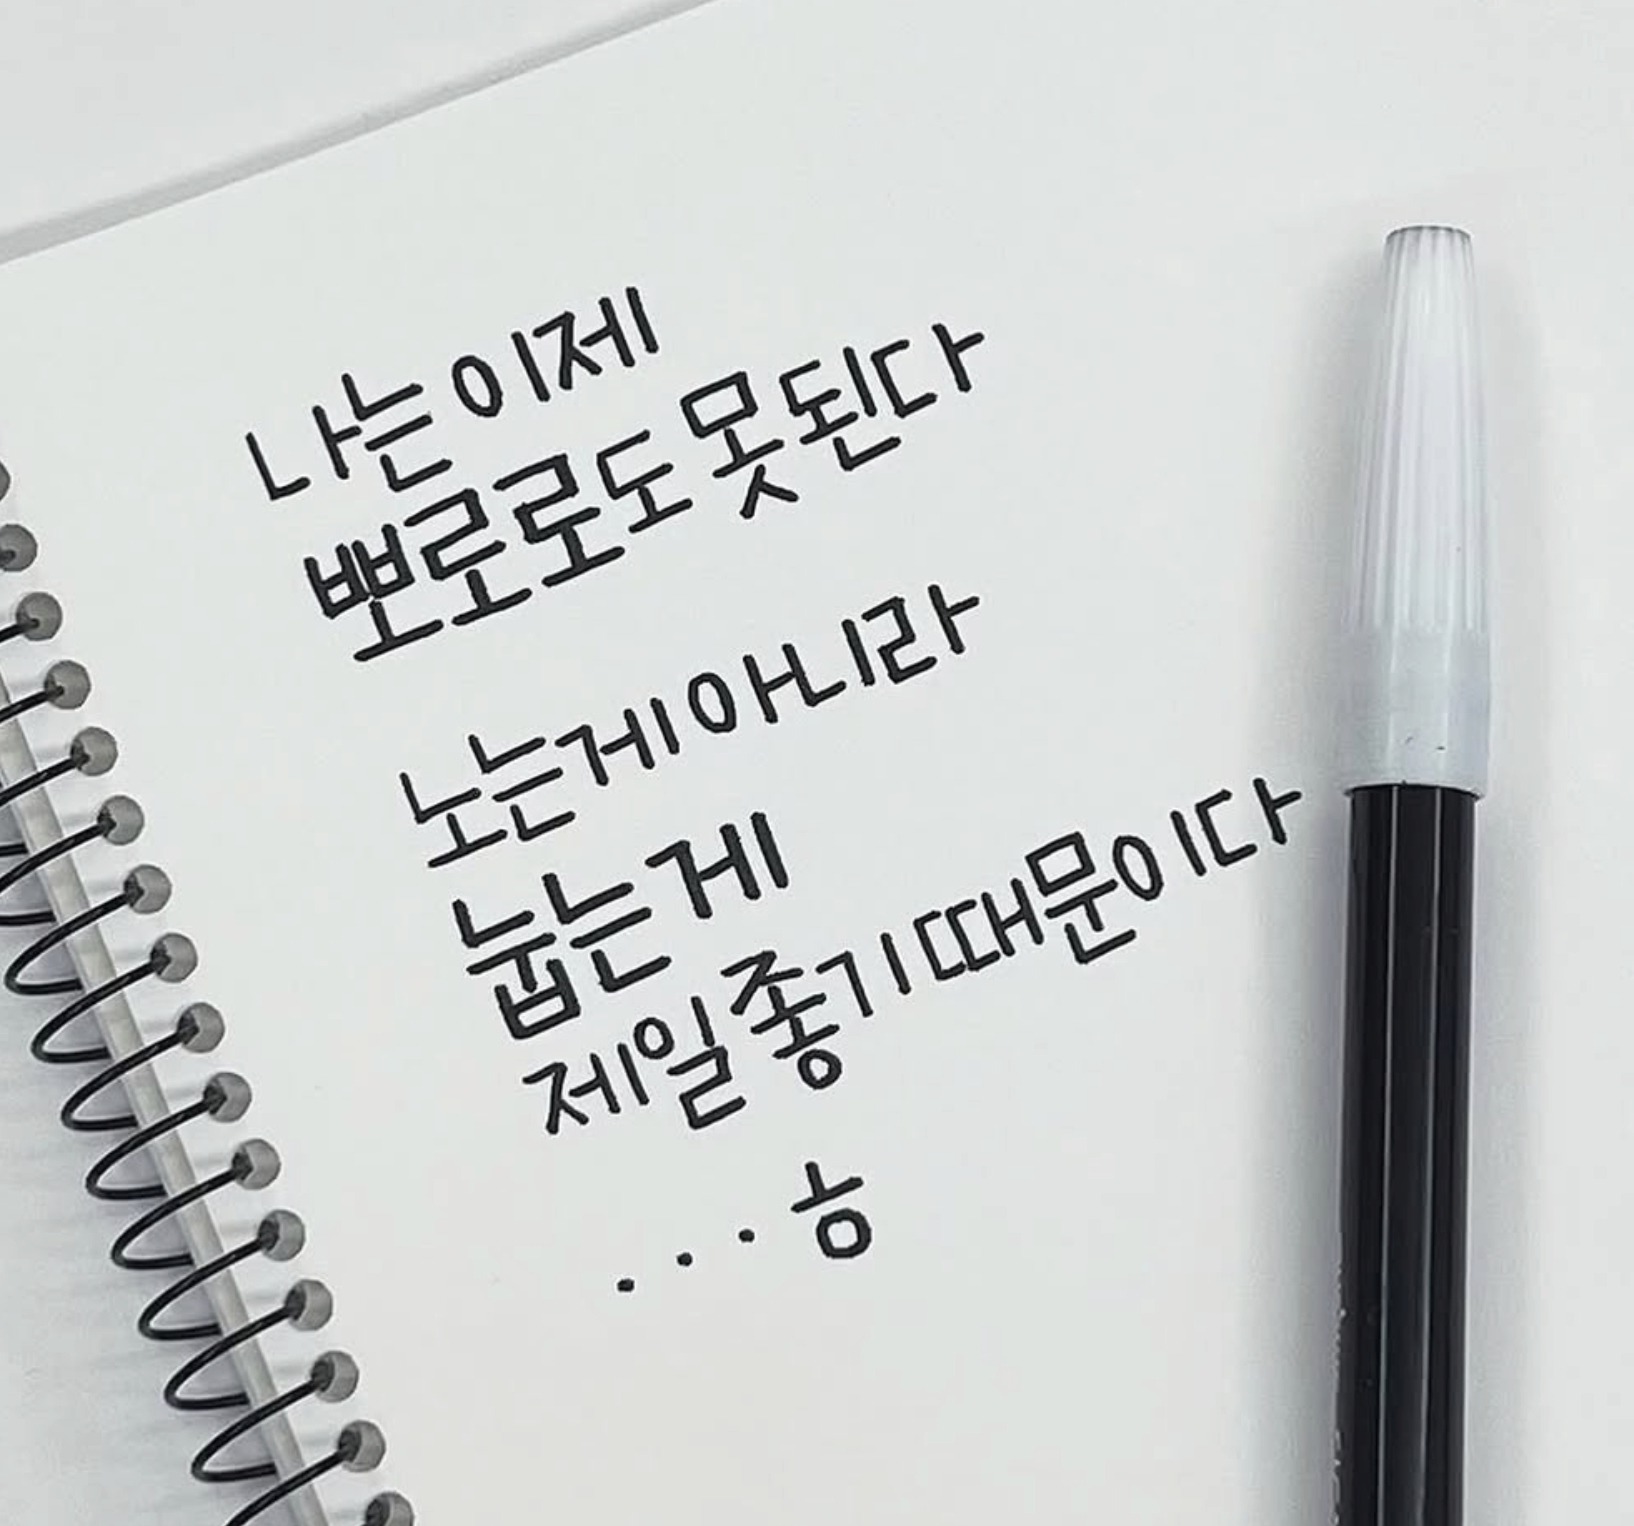 나는 이제
뽀로로도 못 된다
노는게 아니라
눕는게
제일 좋기 때문이다
...ㅎ